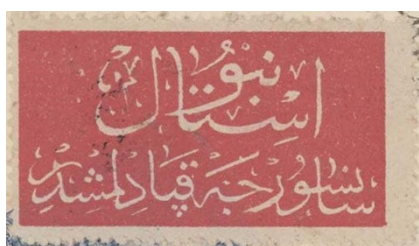 استانبول
سانسورجه قپادلمشدر